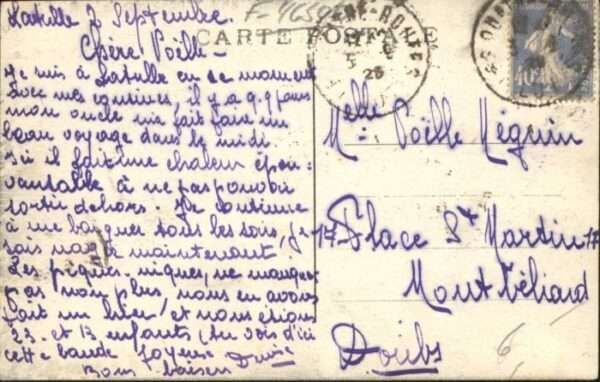 Latulle 2 Septembre.
Chère Poëlle -
Je suis à Latulle en ce moment
avec mes cousines, il y a q.q jours
mon oncle m'a fait faire un
beau voyage dans le midi.
Ici il fait une chaleur épou-
vantable à ne pas pouvoir
sortir dehors. Je continue
à me baigner tous les soirs, je
sais nager maintenant!
Les piques-niques, ne manquent
pas non plus, nous en avons
fait un hier! et nous étions
23. et 13 enfants (tu vois d'ici
cette bande joyeuse
Bons baisers
CARTE POSTALE
Melle Poëlle Méguin
17 Place St Martin 17
Montbéliard
Doubs
6